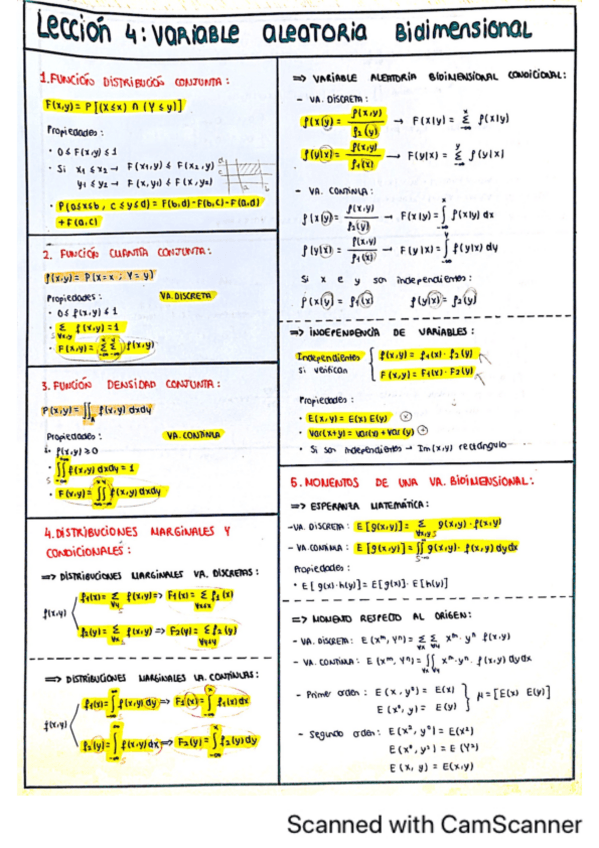 Lección 4: VARIABLE ALEATORIA Bidimensional
1. FUNCIÓN DISTRIBUCIÓN CONJUNTA:
F(x,y) = P[(X≤x) ∩ (Y≤y)]
Propiedades:
· 0 ≤ F(x,y) ≤ 1
· Si x₁ ≤ x₂ → F(x₁,y) ≤ F(x₂,y)
y₁ ≤ y₂ → F(x,y₁) ≤ F(x,y₂)
· P(a≤x≤b, c≤y≤d) = F(b,d) - F(b,c) - F(a,d)
+ F(a,c)
2. FUNCIÓN CUANTÍA CONJUNTA:
f(x,y) = P(X=x ; Y=y)
Propiedades: VA. DISCRETA
· 0 ≤ f(x,y) ≤ 1
· Σ f(x,y) = 1
· F(x,y) = Σ Σ f(x,y)
3. FUNCIÓN DENSIDAD CONJUNTA:
P(x,y) = ∬ f(x,y) dxdy
Propiedades: VA. CONTINUA
f(x,y) ≥ 0
· ∬ f(x,y) dxdy = 1
· F(x,y) = ∬ f(x,y) dxdy
4. DISTRIBUCIONES MARGINALES Y
CONDICIONALES:
=> DISTRIBUCIONES MARGINALES VA. DISCRETAS:
f₁(x) = Σ f(x,y) => F₁(x) = Σ f₁(x)
f(x,y)
f₂(y) = Σ f(x,y) => F₂(y) = Σ f₂(y)
=> DISTRIBUCIONES MARGINALES VA. CONTINUAS:
f₁(x) = ∫ f(x,y) dy => F₁(x) = ∫ f₁(x) dx
f(x,y)
f₂(y) = ∫ f(x,y) dx => F₂(y) = ∫ f₂(y) dy
=> VARIABLE ALEATORIA BIDIMENSIONAL CONDICIONAL:
- VA. DISCRETA:
f(x|y) = f(x,y) / f₂(y) → F(x|y) = Σ f(x|y)
f(y|x) = f(x,y) / f₁(x) → F(y|x) = Σ f(y|x)
- VA. CONTINUA:
f(x|y) = f(x,y) / f₂(y) → F(x|y) = ∫ f(x|y) dx
f(y|x) = f(x,y) / f₁(x) → F(y|x) = ∫ f(y|x) dy
Si x e y son independientes:
f(x|y) = f₁(x) f(y|x) = f₂(y)
=> INDEPENDENCIA DE VARIABLES:
Independientes f(x,y) = f₁(x) · f₂(y)
si verifican F(x,y) = F₁(x) · F₂(y)
Propiedades:
· E(x,y) = E(x) E(y)
· Var(x+y) = Var(x) + Var(y)
· Si son independientes → Im(x,y) rectángulo
5. MOMENTOS DE UNA VA. BIDIMENSIONAL:
=> ESPERANZA MATEMÁTICA:
- VA. DISCRETA: E[g(x,y)] = Σ g(x,y) · f(x,y)
- VA. CONTINUA: E[g(x,y)] = ∬ g(x,y) · f(x,y) dydx
Propiedades:
· E[g(x)·h(y)] = E[g(x)] · E[h(y)]
=> MOMENTO RESPECTO AL ORIGEN:
- VA. DISCRETA: E(xᵐ, Yⁿ) = Σ Σ xᵐ · yⁿ f(x,y)
- VA. CONTINUA: E(xᵐ, Yⁿ) = ∬ xᵐ · yⁿ · f(x,y) dydx
- Primer orden: E(x, y⁰) = E(x)
E(x⁰, y) = E(y) μ = [E(x) E(y)]
- Segundo orden: E(x², y⁰) = E(x²)
E(x⁰, y²) = E(Y²)
E(x, y) = E(x,y)
Scanned with CamScanner